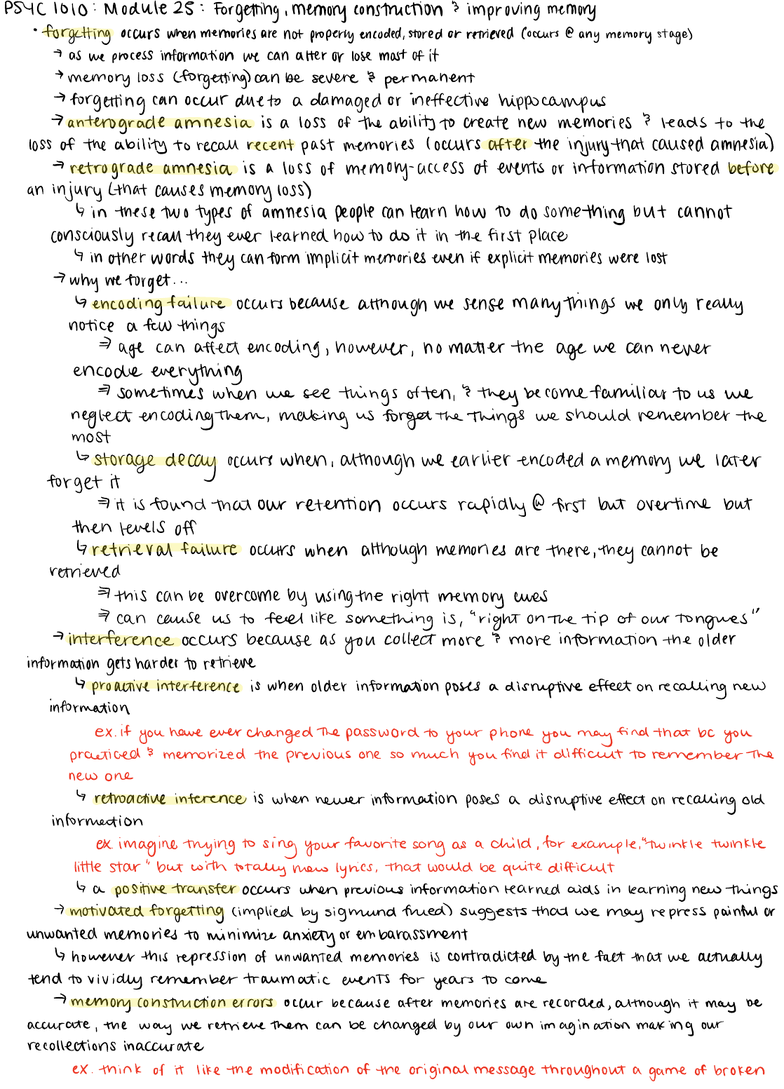 PSYC 1010: Module 25: Forgetting, memory construction & improving memory
• forgetting occurs when memories are not properly encoded, stored or retrieved (occurs @ any memory stage)
→ as we process information we can alter or lose most of it
→ memory loss (forgetting) can be severe & permanent
→ forgetting can occur due to a damaged or ineffective hippocampus
→ anterograde amnesia is a loss of the ability to create new memories & leads to the
loss of the ability to recall recent past memories (occurs after the injury that caused amnesia)
→ retrograde amnesia is a loss of memory-access of events or information stored before
an injury (that causes memory loss)
↳ in these two types of amnesia people can learn how to do something but cannot
consciously recall they ever learned how to do it in the first place
↳ in other words they can form implicit memories even if explicit memories were lost
→ why we forget...
↳ encoding failure occurs because although we sense many things we only really
notice a few things
⇒ age can affect encoding, however, no matter the age we can never
encode everything
⇒ sometimes when we see things often, & they become familiar to us we
neglect encoding them, making us forget the things we should remember the
most
↳ storage decay occurs when, although we earlier encoded a memory we later
forget it
⇒ it is found that our retention occurs rapidly @ first but overtime but
then levels off
↳ retrieval failure occurs when although memories are there, they cannot be
retrieved
⇒ this can be overcome by using the right memory cues
⇒ can cause us to feel like something is, "right on the tip of our tongues"
→ interference occurs because as you collect more & more information the older
information gets harder to retrieve
↳ proactive interference is when older information poses a disruptive effect on recalling new
information
ex. if you have ever changed the password to your phone you may find that bc you
practiced & memorized the previous one so much you find it difficult to remember the
new one
↳ retroactive inference is when newer information poses a disruptive effect on recalling old
information
ex. imagine trying to sing your favorite song as a child, for example, "twinkle twinkle
little star" but with totally new lyrics, that would be quite difficult
↳ a positive transfer occurs when previous information learned aids in learning new things
→ motivated forgetting (implied by sigmund frued) suggests that we may repress painful or
unwanted memories to minimize anxiety or embarassment
↳ however this repression of unwanted memories is contradicted by the fact that we actually
tend to vividly remember traumatic events for years to come
→ memory construction errors occur because after memories are recorded, although it may be
accurate, the way we retrieve them can be changed by our own imagination making our
recollections inaccurate
ex. think of it like the modification of the original message throughout a game of broken